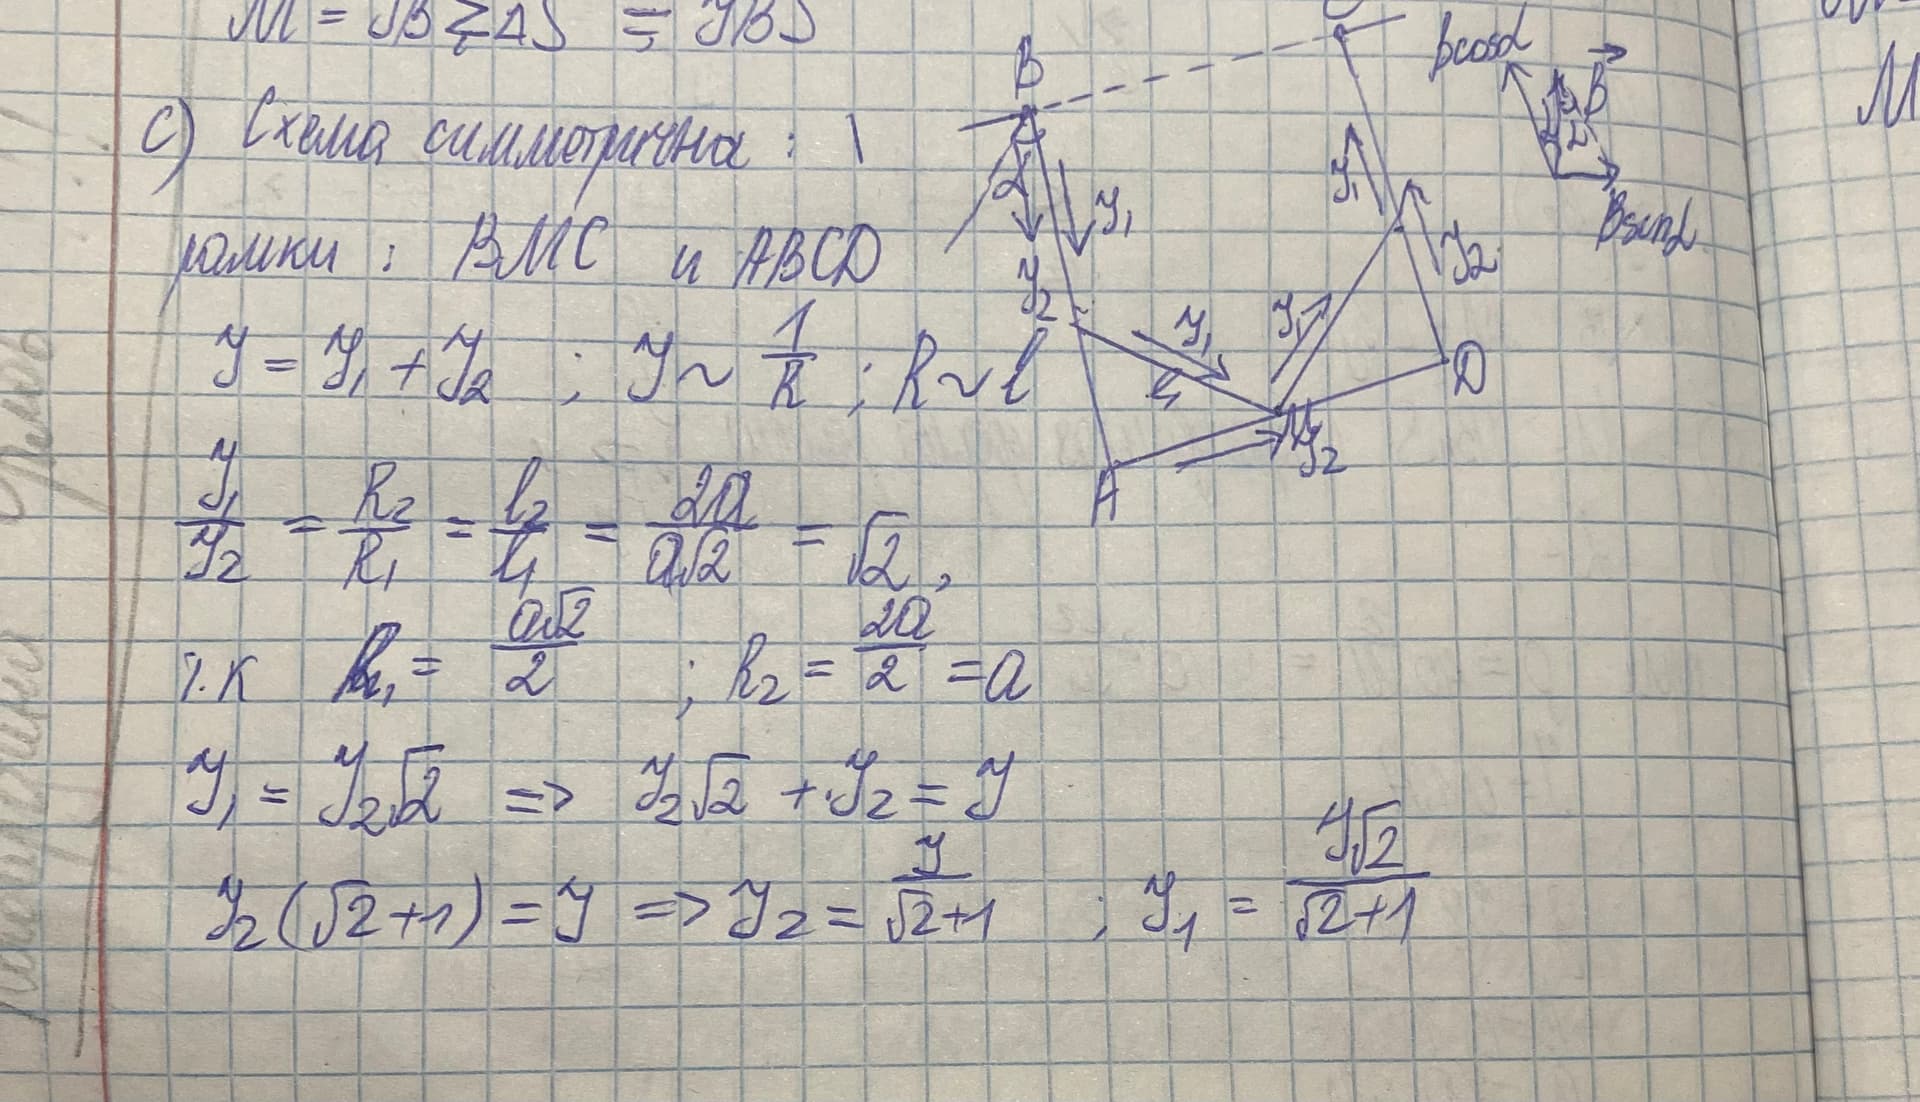 M = JB ΣΔS = JBS
c) Схема симметрична :
рамки : BMC и ABCD
J = J₁ + J₂ ; J ~ 1/R ; R ~ l
J₁/J₂ = R₂/R₁ = l₂/l₁ = 2a/a√2 = √2,
т.к h₁ = a√2/2 ; h₂ = 2a/2 = a
J₁ = J₂√2 => J₂√2 + J₂ = J
J₂(√2+1) = J => J₂ = J/√2+1 ; J₁ = J√2/√2+1
B
α
J₁
J₂
J₁
J₁
l₁
J₁
J₂
D
M
J₂
A
Bcosα
B
Bsinα
M